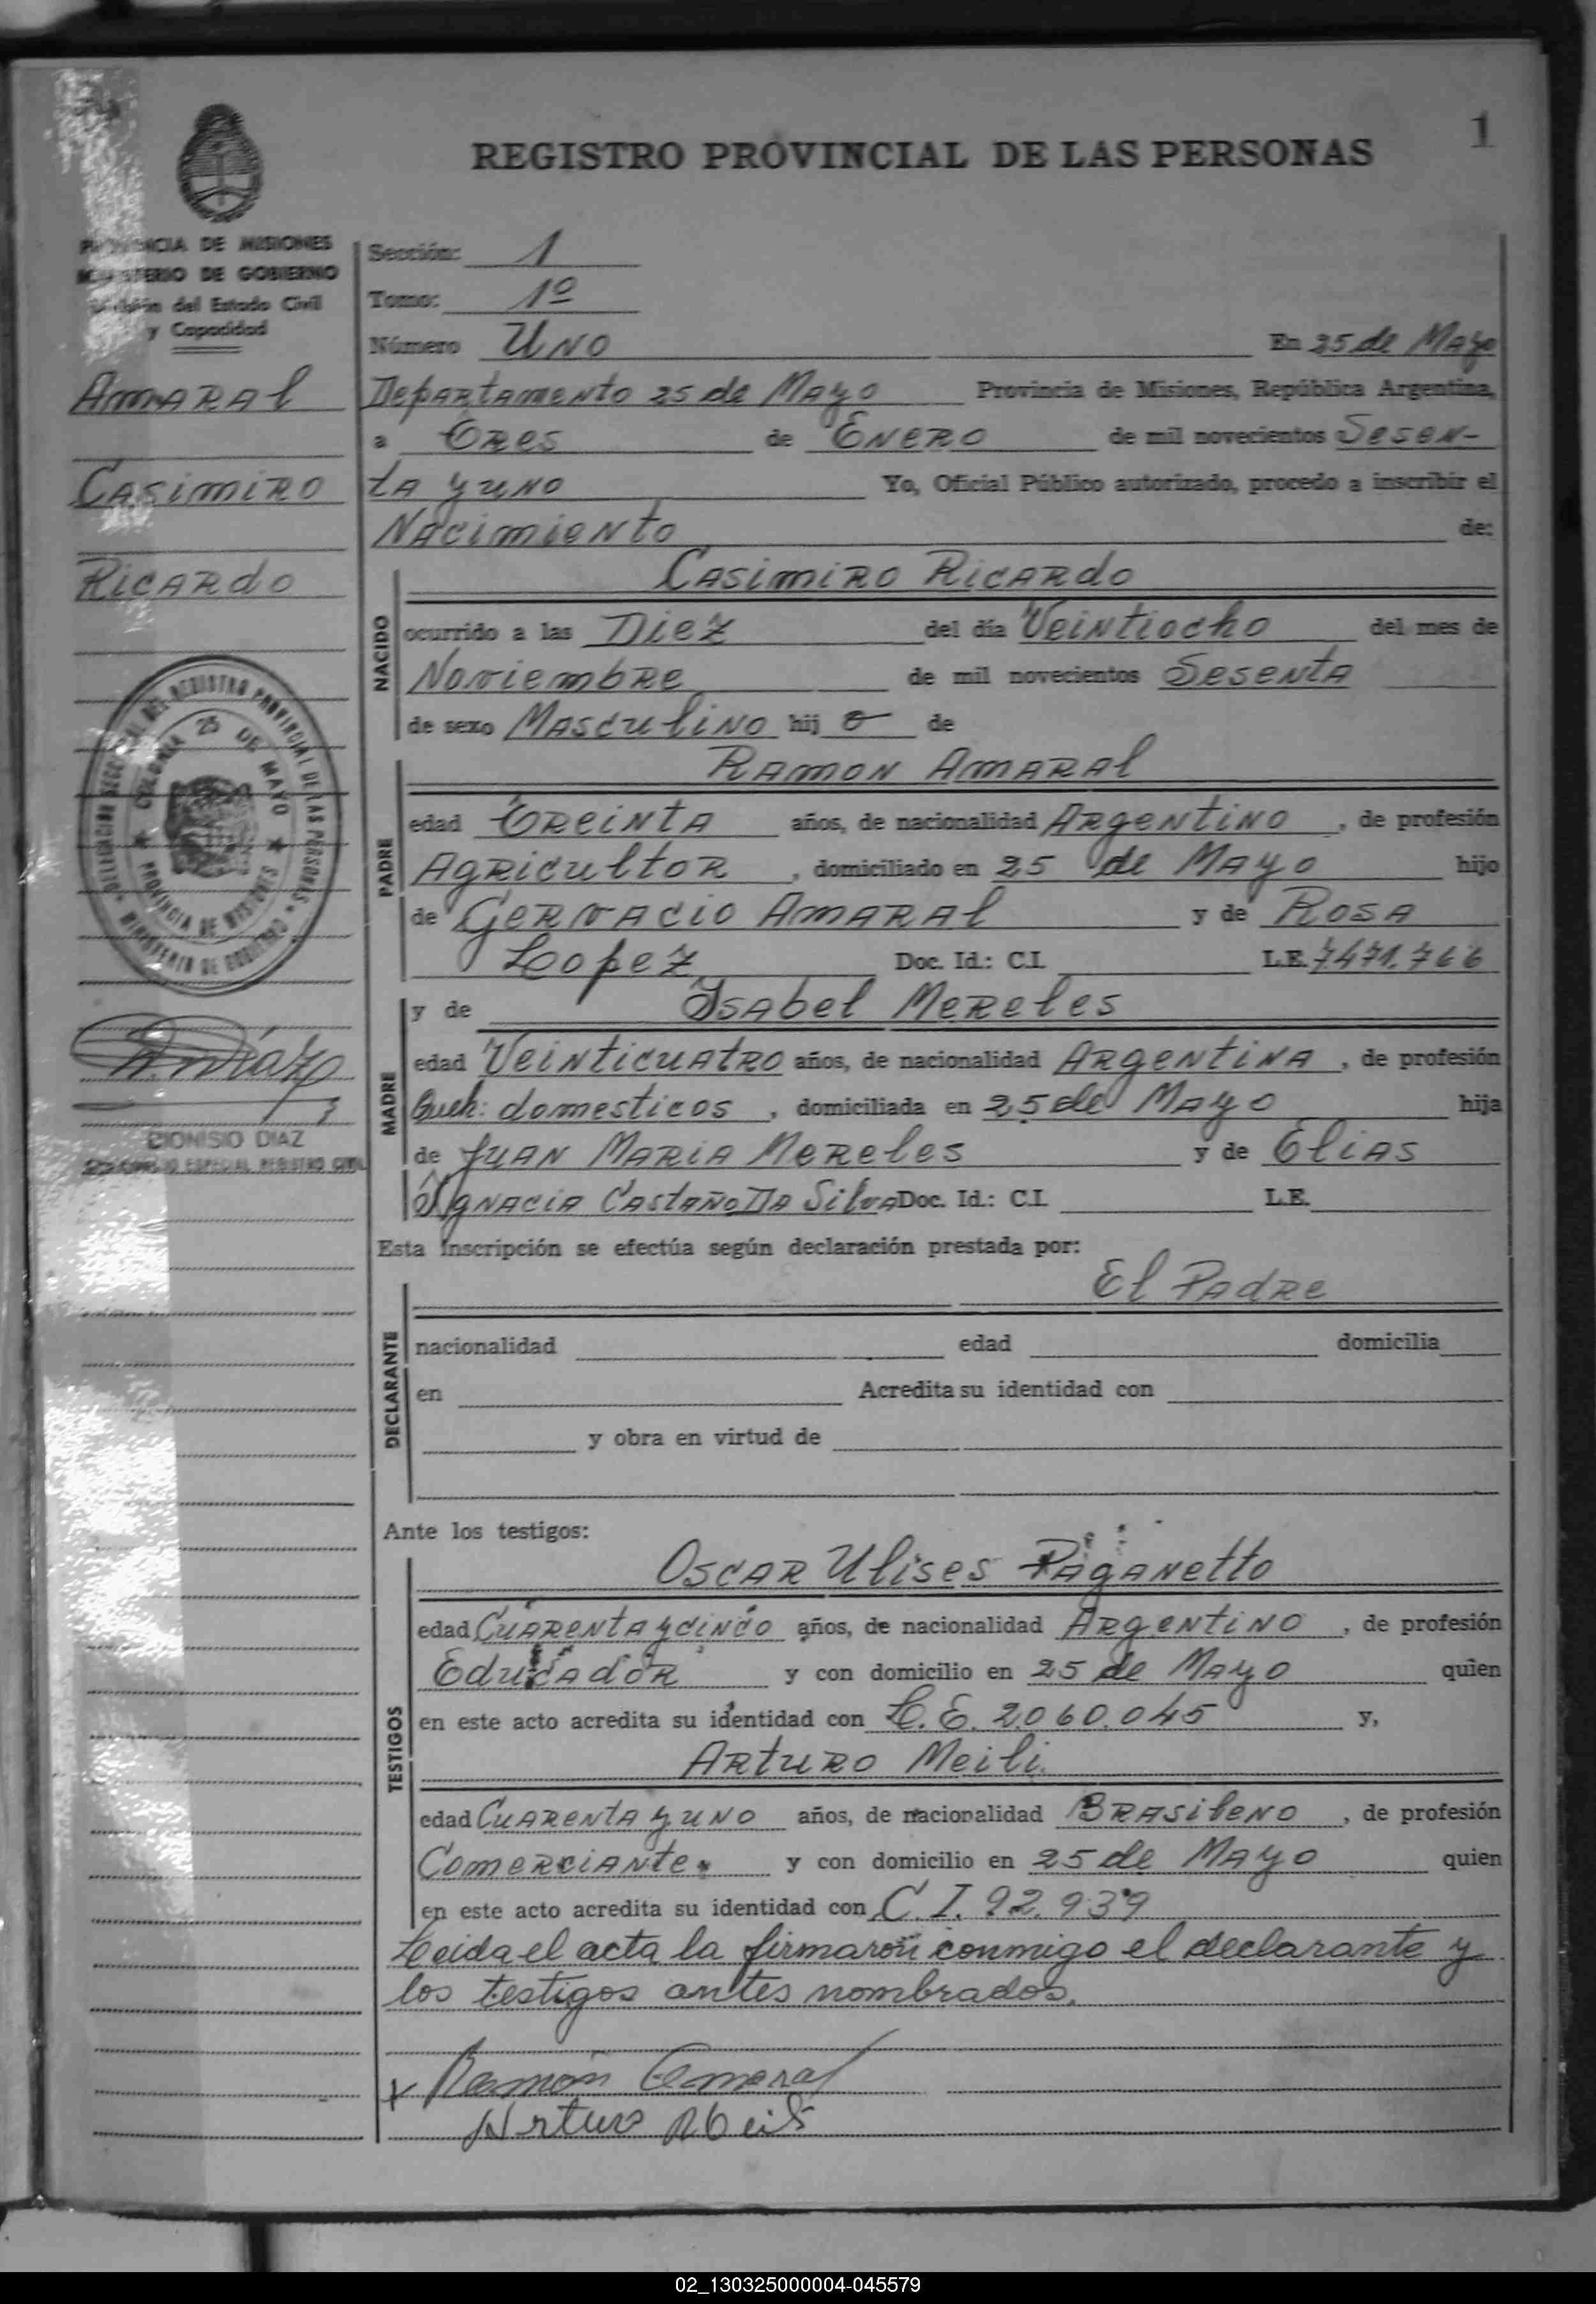 1
REGISTRO PROVINCIAL DE LAS PERSONAS
PROVINCIA DE MISIONES
MINISTERIO DE GOBIERNO
División del Estado Civil
y Capacidad
Amaral
Casimiro
Ricardo
DELEGACION SECCIONAL DEL REGISTRO PROVINCIAL DE LAS PERSONAS
MINISTERIO DE GOBIERNO
COLONIA 25 DE MAYO
PROVINCIA DE MISIONES
DIONISIO DIAZ
ESPECIAL REGISTRO CIVIL
Sección: 1
Tomo: 1º
Número Uno En 25 de Mayo
Departamento 25 de Mayo Provincia de Misiones, República Argentina,
a Tres de Enero de mil novecientos Sesen-
ta y uno Yo, Oficial Público autorizado, procedo a inscribir el
Nacimiento de:
NACIDO
Casimiro Ricardo
ocurrido a las Diez del día Veintiocho del mes de
Noviembre de mil novecientos Sesenta
de sexo Masculino hij o de
PADRE
Ramon Amaral
edad Treinta años, de nacionalidad Argentino, de profesión
Agricultor, domiciliado en 25 de Mayo hijo
de Gervacio Amaral y de Rosa
Lopez Doc. Id.: C.I. L.E. 7.471.766
MADRE
y de Isabel Mereles
edad Veinticuatro años, de nacionalidad Argentina, de profesión
Queh: domesticos, domiciliada en 25 de Mayo hija
de Juan Maria Mereles y de Elias
Ignacia Castaño Da Silva Doc. Id.: C.I. L.E.
Esta inscripción se efectúa según declaración prestada por:
DECLARANTE
El Padre
nacionalidad edad domicilia
en Acredita su identidad con
y obra en virtud de
Ante los testigos:
TESTIGOS
Oscar Ulises Paganetto
edad Cuarenta y cinco años, de nacionalidad Argentino, de profesión
Educador y con domicilio en 25 de Mayo quien
en este acto acredita su identidad con L.E. 2.060.045 y,
Arturo Meili.
edad Cuarenta y uno años, de nacionalidad Brasileno, de profesión
Comerciante. y con domicilio en 25 de Mayo quien
en este acto acredita su identidad con C.I. 92.939
Leida el acta la firmaron conmigo el declarante y
los testigos antes nombrados.
x Ramón Amaral
Arturo Meili
02_130325000004-045579